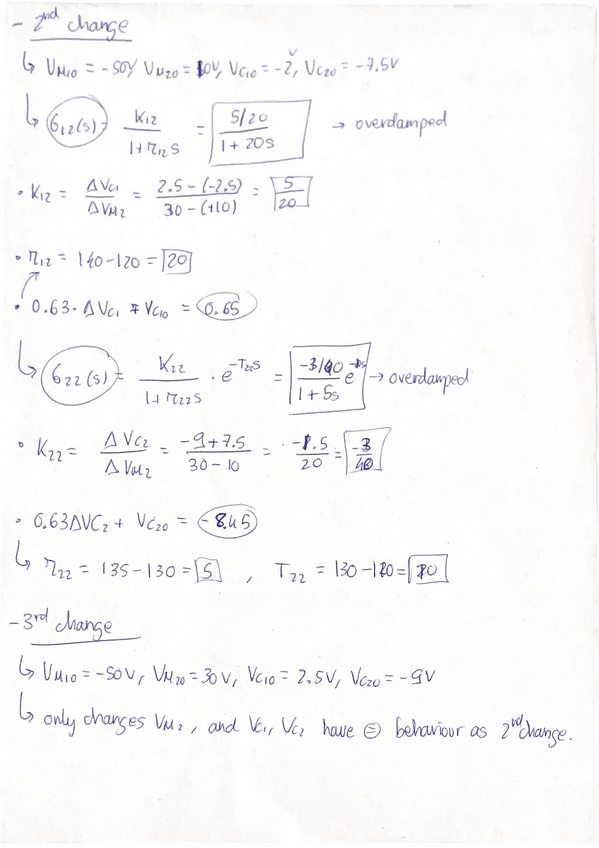 - 2nd change
↳ VM10 = -50V, VM20 = 10V, VC10 = -2V, VC20 = -7.5V
↳ G12(s) = K12 / (1+τ12s) = (5/20) / (1+20s) → overdamped
• K12 = ΔVC1 / ΔVM2 = (2.5-(-2.5)) / (30-(+10)) = 5/20
• τ12 = 140-120 = 20
• 0.63·ΔVC1 + VC10 = 0.65
↳ G22(s) = K22 / (1+τ22s) · e^(-T22s) = (-3/40) / (1+5s) e → overdamped
• K22 = ΔVC2 / ΔVM2 = (-9+7.5) / (30-10) = -1.5/20 = -3/40
• 0.63ΔVC2 + VC20 = -8.45
↳ τ22 = 135-130 = 5, T22 = 130-120 = 10
- 3rd change
↳ VM10 = -50V, VM20 = 30V, VC10 = 2.5V, VC20 = -9V
↳ only changes VM2, and VC1, VC2 have = behaviour as 2nd change.